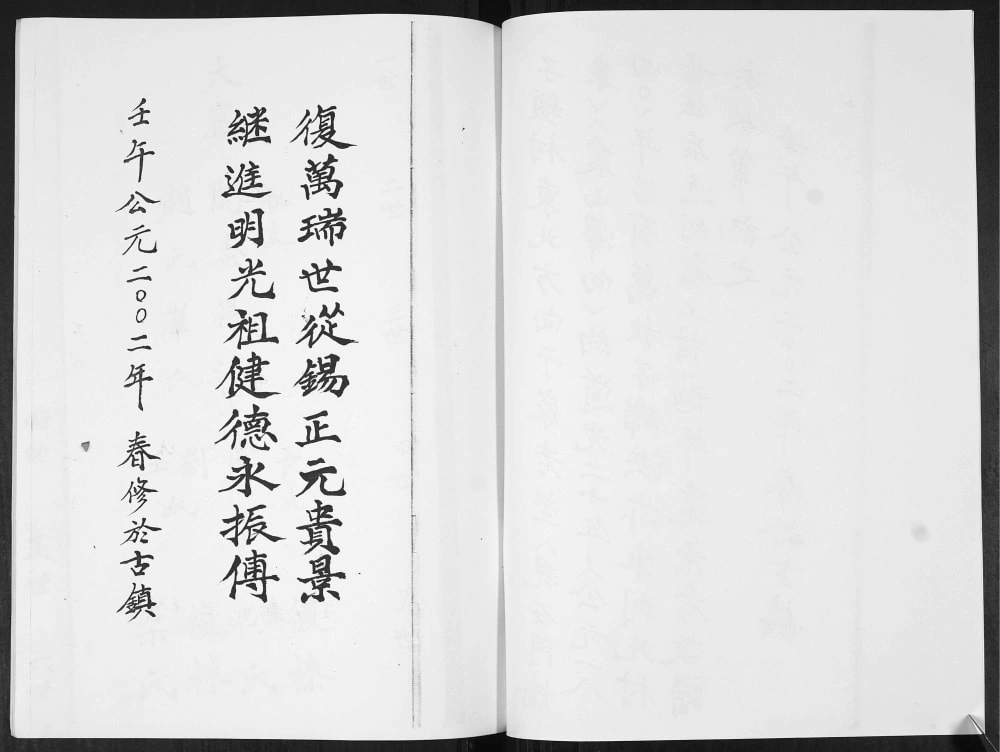 復萬瑞世從錫正元貴景
継進明光祖健德永振傳
壬午公元二〇〇二年 春修於古鎮